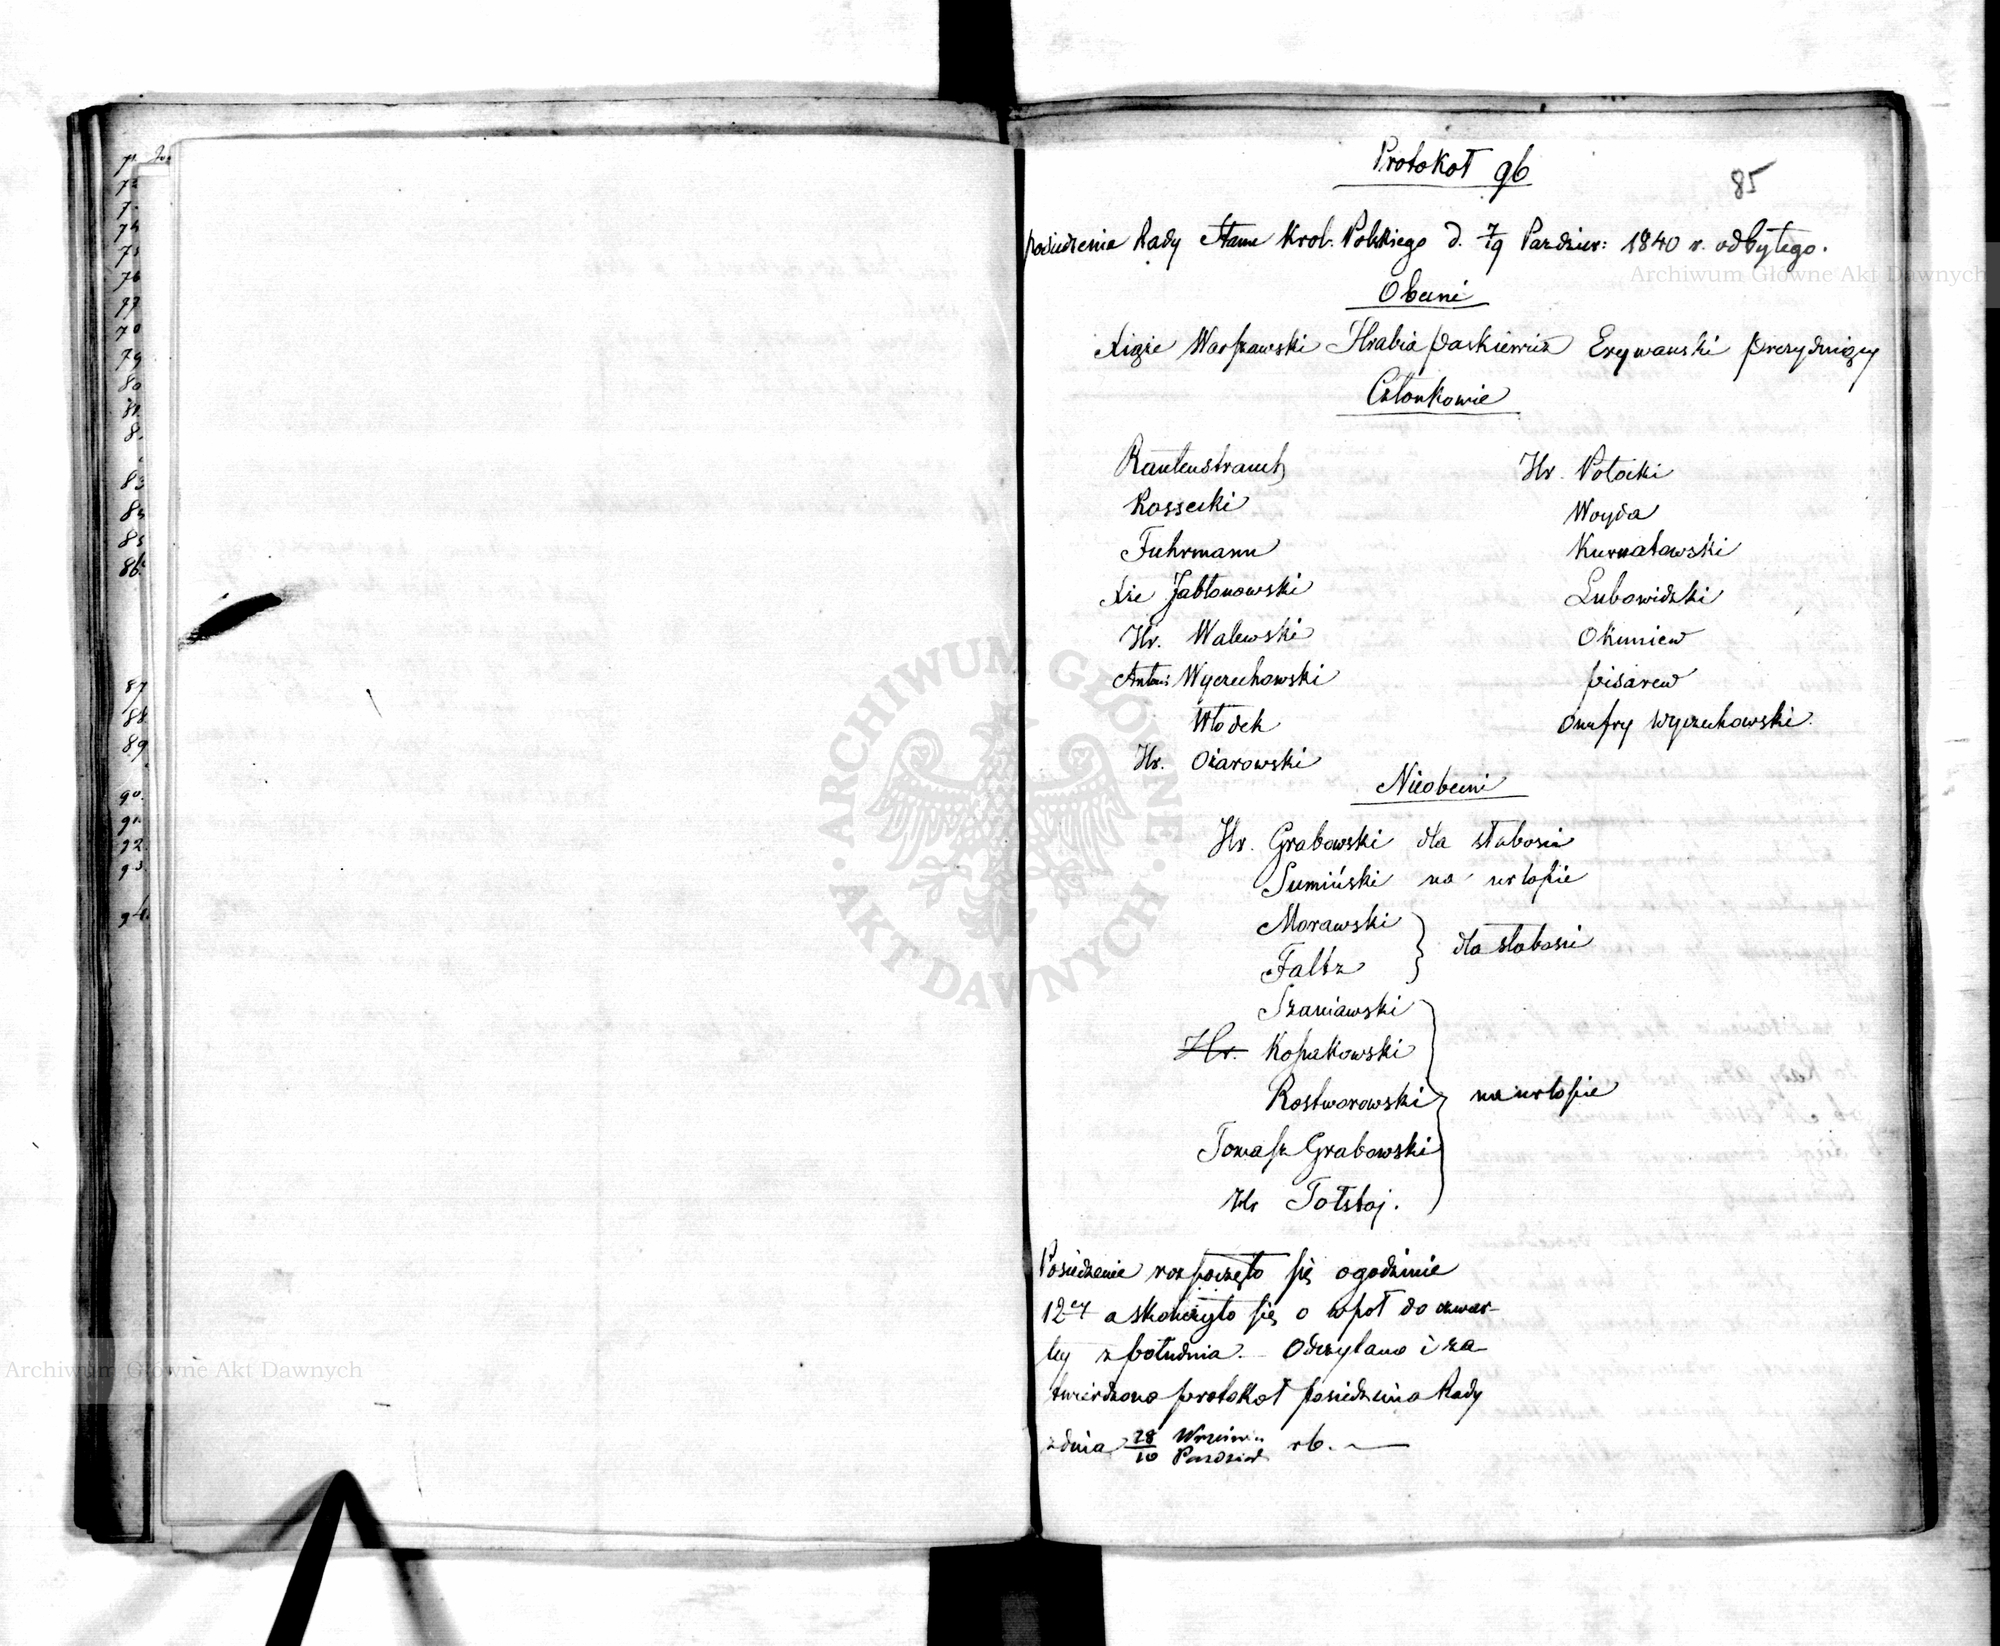 Protokoł 96
85
posiedzenia Rady Stanu Krol. Polskiego d. 7/19 Pazdzier: 1840 r. odbytego.
Obecni
Xiąże Warszawski Hrabia Paskiewicz Erywanski prezydujący
Członkowie
Rautenstrauch
Kossecki
Fuhrmann
Xże Jabłonowski
Hr. Walewski
Antoni Wyczechowski
Włodek
Hr. Ożarowski
Hr. Potocki
Woyda
Kurnatowski
Lubowidzki
Okuniew
Pisarew
Onufry Wyczechowski.
Nieobecni
Hr. Grabowski dla słabości
Sumiński na urlopie
Morawski
Faltz
dla słabości
Szaniawski
Hr. Kossakowski
Rostworowski
Tomasz Grabowski
Hr Tołstoj.
na urlopie
Posiedzenie rozpoczęto się o godzinie
12ey a skończyło się o wpoł do czwar-
tey z południa. – Odczytano i za-
twierdzono protokoł posiedzenia Rady
z dnia 28/10 Wrzesnia/Pazdzier. rb. —
71
72
74
75
76
77
78
79
80
81.
83
85
86.
87
88.
89.
90.
91.
92.
93.
94.
ARCHIWUM GŁÓWNE
AKT DAWNYCH
Archiwum Główne Akt Dawnych
Archiwum Główne Akt Dawnych